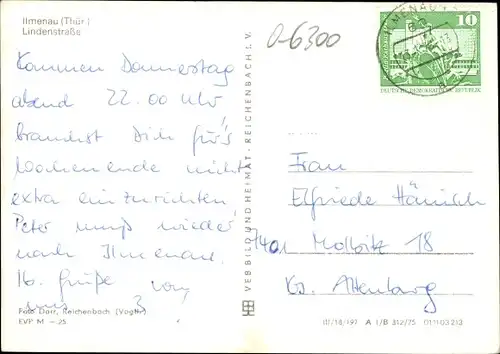 Ilmenau (Thür.)
Lindenstraße
0-6300
ILMENAU
10
DEUTSCHE DEMOKRATISCHE REPUBLIK
Kommen Donnerstag
abend 22.00 Uhr
brauchst Dich für's
Wochenende nicht
extra einzurichten,
Peter muß wieder
nach Ilmenau.
Hb. Grüße von
uns 3
Foto Darr, Reichenbach (Vogtl.)
EVP M -.25
VEB BILD UND HEIMAT, REICHENBACH I. V.
Frau
Elfriede Hänisch
7401 Molbitz 18
Krs. Altenburg
A 1/B 312/75 01 11 03 213